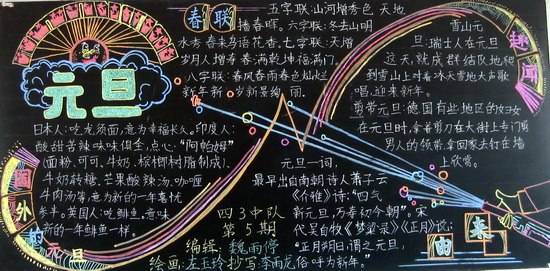 元旦
日本人:吃龙须面,意为幸福长久。印度人:
酸甜苦辣味味俱全,点心:“阿帕姆”
(面粉、可可、牛奶、槟榔树脂制成)、
牛奶转糖、芒果酸辣汤、咖喱
牛肉汤等,意为新的一年喜忧
参半。英国人:吃鲱鱼,意味
新的一年鲱鱼一样。
国外的元旦
春联
五字联:山河增秀色 天地
播春晖。六字联:冬去山明
水秀 春来鸟语花香。七字联:天增
岁月人增寿 春满乾坤福满门。
八字联:春风春雨春色灿烂
新年新岁新景绚丽。
趣闻
雪山元
旦:瑞士人在元旦
这天,就成群结队地爬
到雪山上对着冰天雪地大声歌
唱,迎来新年。
剪带元旦:德国有些地区的妇女
在元旦时,拿着剪刀在大街上专门剪
男人的领带,拿回家去钉在墙
上欣赏。
元旦一词,
最早出自南朝诗人萧子云
《介雅》诗:“四气
新元旦,万寿初今朝”。宋
代吴自牧《梦粱录》《正月》说:
“正月朔日,谓之元旦,
俗呼为新年。”
由来
四3中队
第5期
编辑:魏雨停
绘画:左玉玲 抄写:李雨龙